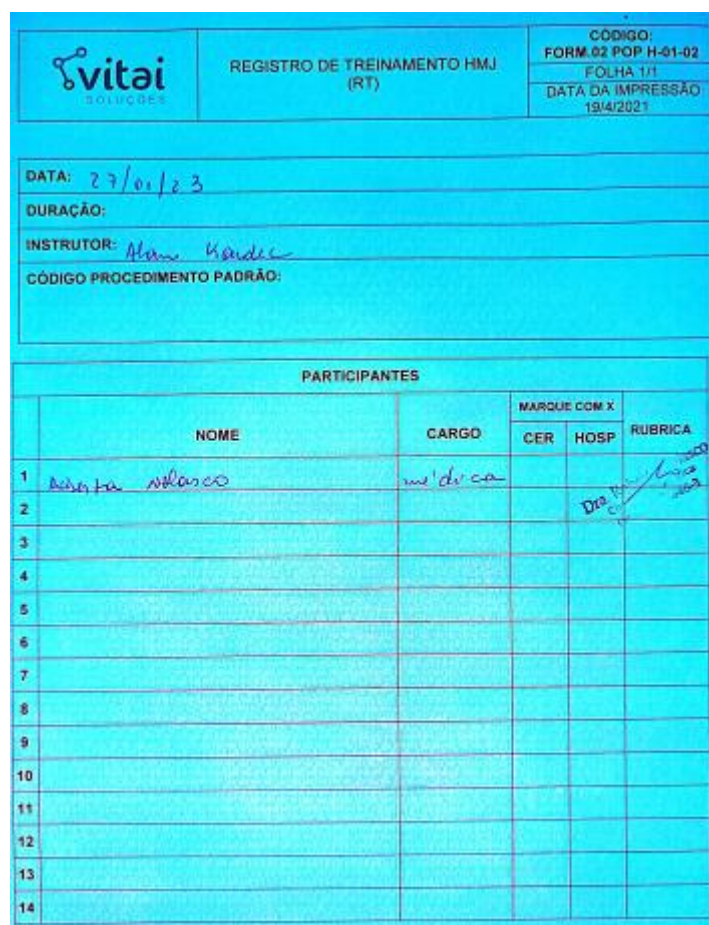 vitai
SOLUÇÕES
REGISTRO DE TREINAMENTO HMJ
(RT)
CÓDIGO:
FORM.02 POP H-01-02
FOLHA 1/1
DATA DA IMPRESSÃO
19/4/2021
DATA: 27/01/23
DURAÇÃO:
INSTRUTOR: Alan Kardec
CÓDIGO PROCEDIMENTO PADRÃO:
PARTICIPANTES
NOME CARGO MARQUE COM X RUBRICA
CER HOSP
1 Nolasco médica
Dra
2
3
4
5
6
7
8
9
10
11
12
13
14